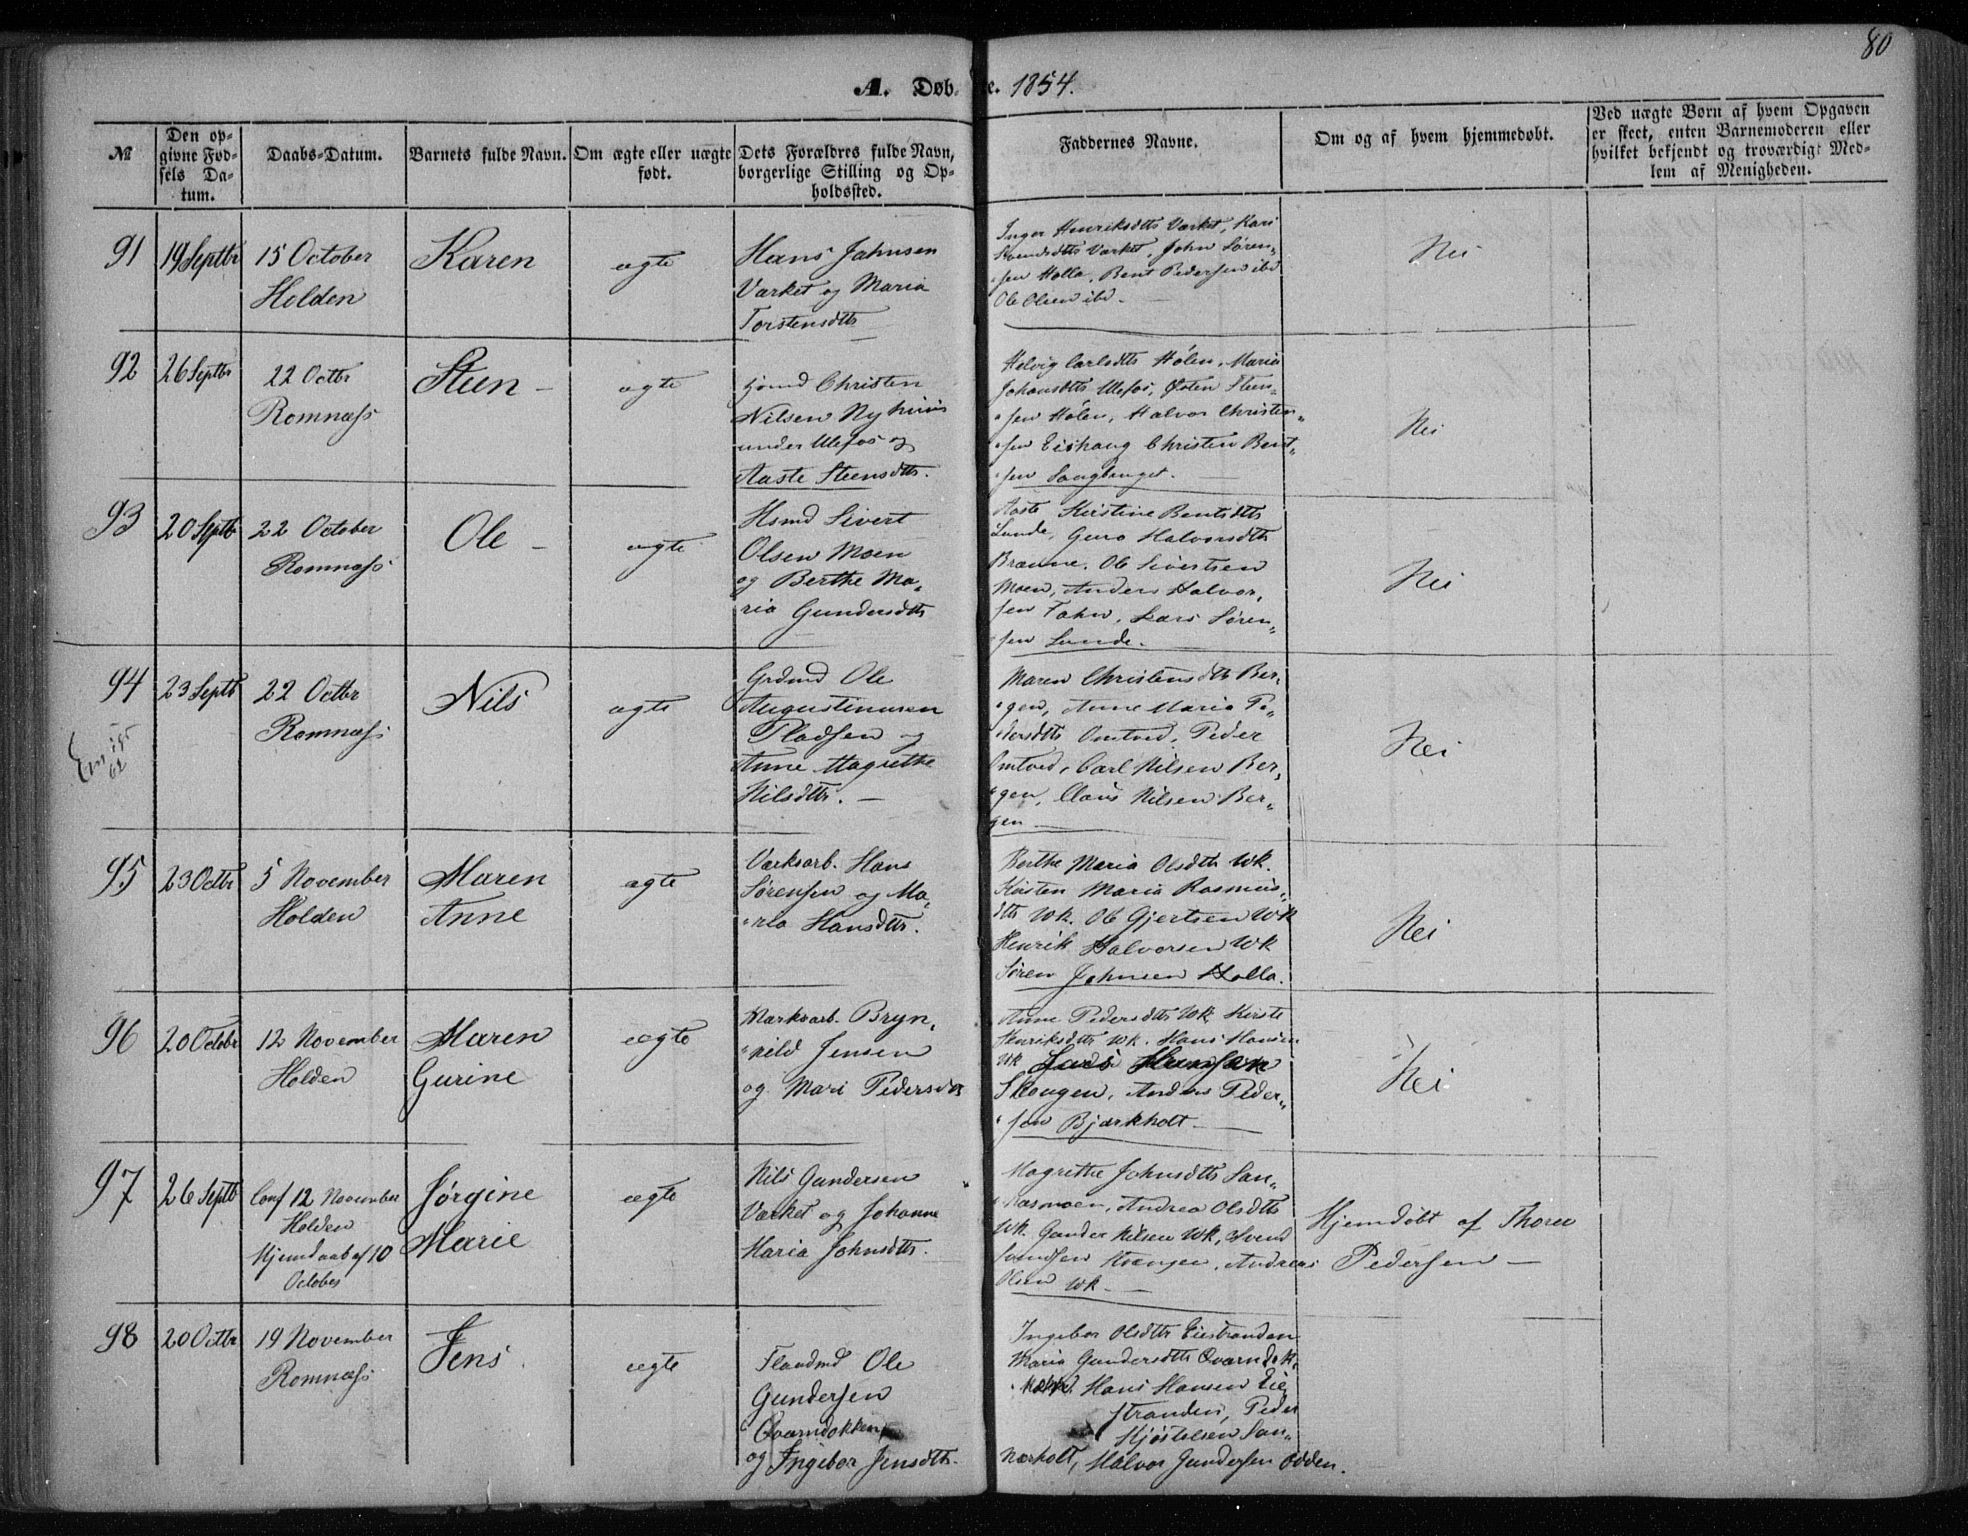 80
A. Døbte. 1854.
№
Den opgivne Fødsels Datum.
Daabs-Datum.
Barnets fulde Navn.
Om ægte eller uægte født.
Dets Forældres fulde Navn, borgerlige Stilling og Opholdssted.
Faddernes Navne.
Om og af hvem hjemmedøbt.
Ved uægte Børn af hvem Opgaven er skeet, enten Barnemoderen eller hvilket bekjendt og troværdigt Medlem af Menigheden.
91
19 Septbr
15 October
Holden
Karen
ægte
Hans Jahnsen
Værket og Maria
Torstensdtr
Inger Henriksdtr Værket, Kari
Svendsdtr Værket, John Søren-
sen Holla, Bent Pedersen ibd
Ole Olsen ibd.
Nei
92
26 Septbr
22 Octbr
Romnæss
Steen
ægte
Christen
Nilsen Nyhuus
under Ulefos og
Aaste Steensdtr.
Helvig Carlsdtr Hølen, Maria
Johansdtr Ulefos, Østen Steen-
sen Hølen, Halvor Christen-
sen Eishaug Christen Bent-
sen
Nei
93
20 Septb
22 October
Romnæss
Ole
ægte
Hsmd Sivert
Olsen Moen
og Berthe Ma-
ria Gundersdtr
Aaste Kirstine Bentsdtr
Lunde, Guro Halvorsdtr
Brænne. Ole Sivertsen
Moen, Anders Halvor-
sen Tahn, Lars Søren-
sen Lunde.
Nei
94
23 Septb
22 Octbr
Romnæss
Nils
ægte
Grdmd Ole
Augustinusen
Pladsen og
Anne Magrethe
Nilsdtr.
Maren Christensdtr Ber-
gen, Anne Maria Pe-
dersdtr Omtved, Peder
Omtved, Carl Nilsen Ber-
gen, Claus Nilsen Ber-
gen
Nei
95
23 Octbr
5 November
Holden
Maren
Anne
ægte
Værksarb. Hans
Sørensen og Ma-
ria Hansdtr.
Berthe Maria Olsdtr Wk.
Kirsten Maria Rasmus-
dtr Wk. Ole Gjertsen Wk
Henrik Halvorsen Wk
Søren Johnsen Holla.
Nei
96
20 Octobr
12 November
Holden
Maren
Gurine
ægte
Værksarb. Bryn-
hild Jensen
og Mari Pedersdtr
Anne Pedersdtr Wk Kirste
Henriksdtr Wk. Hans Hansen
Wk
Skougen, Anders Peder-
sen Bjærkholt
Nei
97
26 Septb
Conf 12 November
Holden
Hjemdaab af 10
October
Jørgine
Marie
ægte
Nils Gundersen
Værket og Johanne
Maria Johnsdtr.
Magrethe Johnsdtr San-
næsmoen, Andrea Olsdtr
Wk. Gunder Nilsen Wk, Svend
Svendsen Andreas
Olsen Wk.
Hjemdøbt af Thorer
Pedersen
98
20 Octbr
19 November
Romnæss
Jens
ægte
Ole
Gundersen
Qværndokken
og Ingebor Jensdtr.
Ingebor Olsdtr Eiestranden
Maria Gundersdtr Qværndok-
Hans Hansen Eie
stranden, Peder
Kjøstelsen San-
nærholt, Halvor Gundersen Odden.